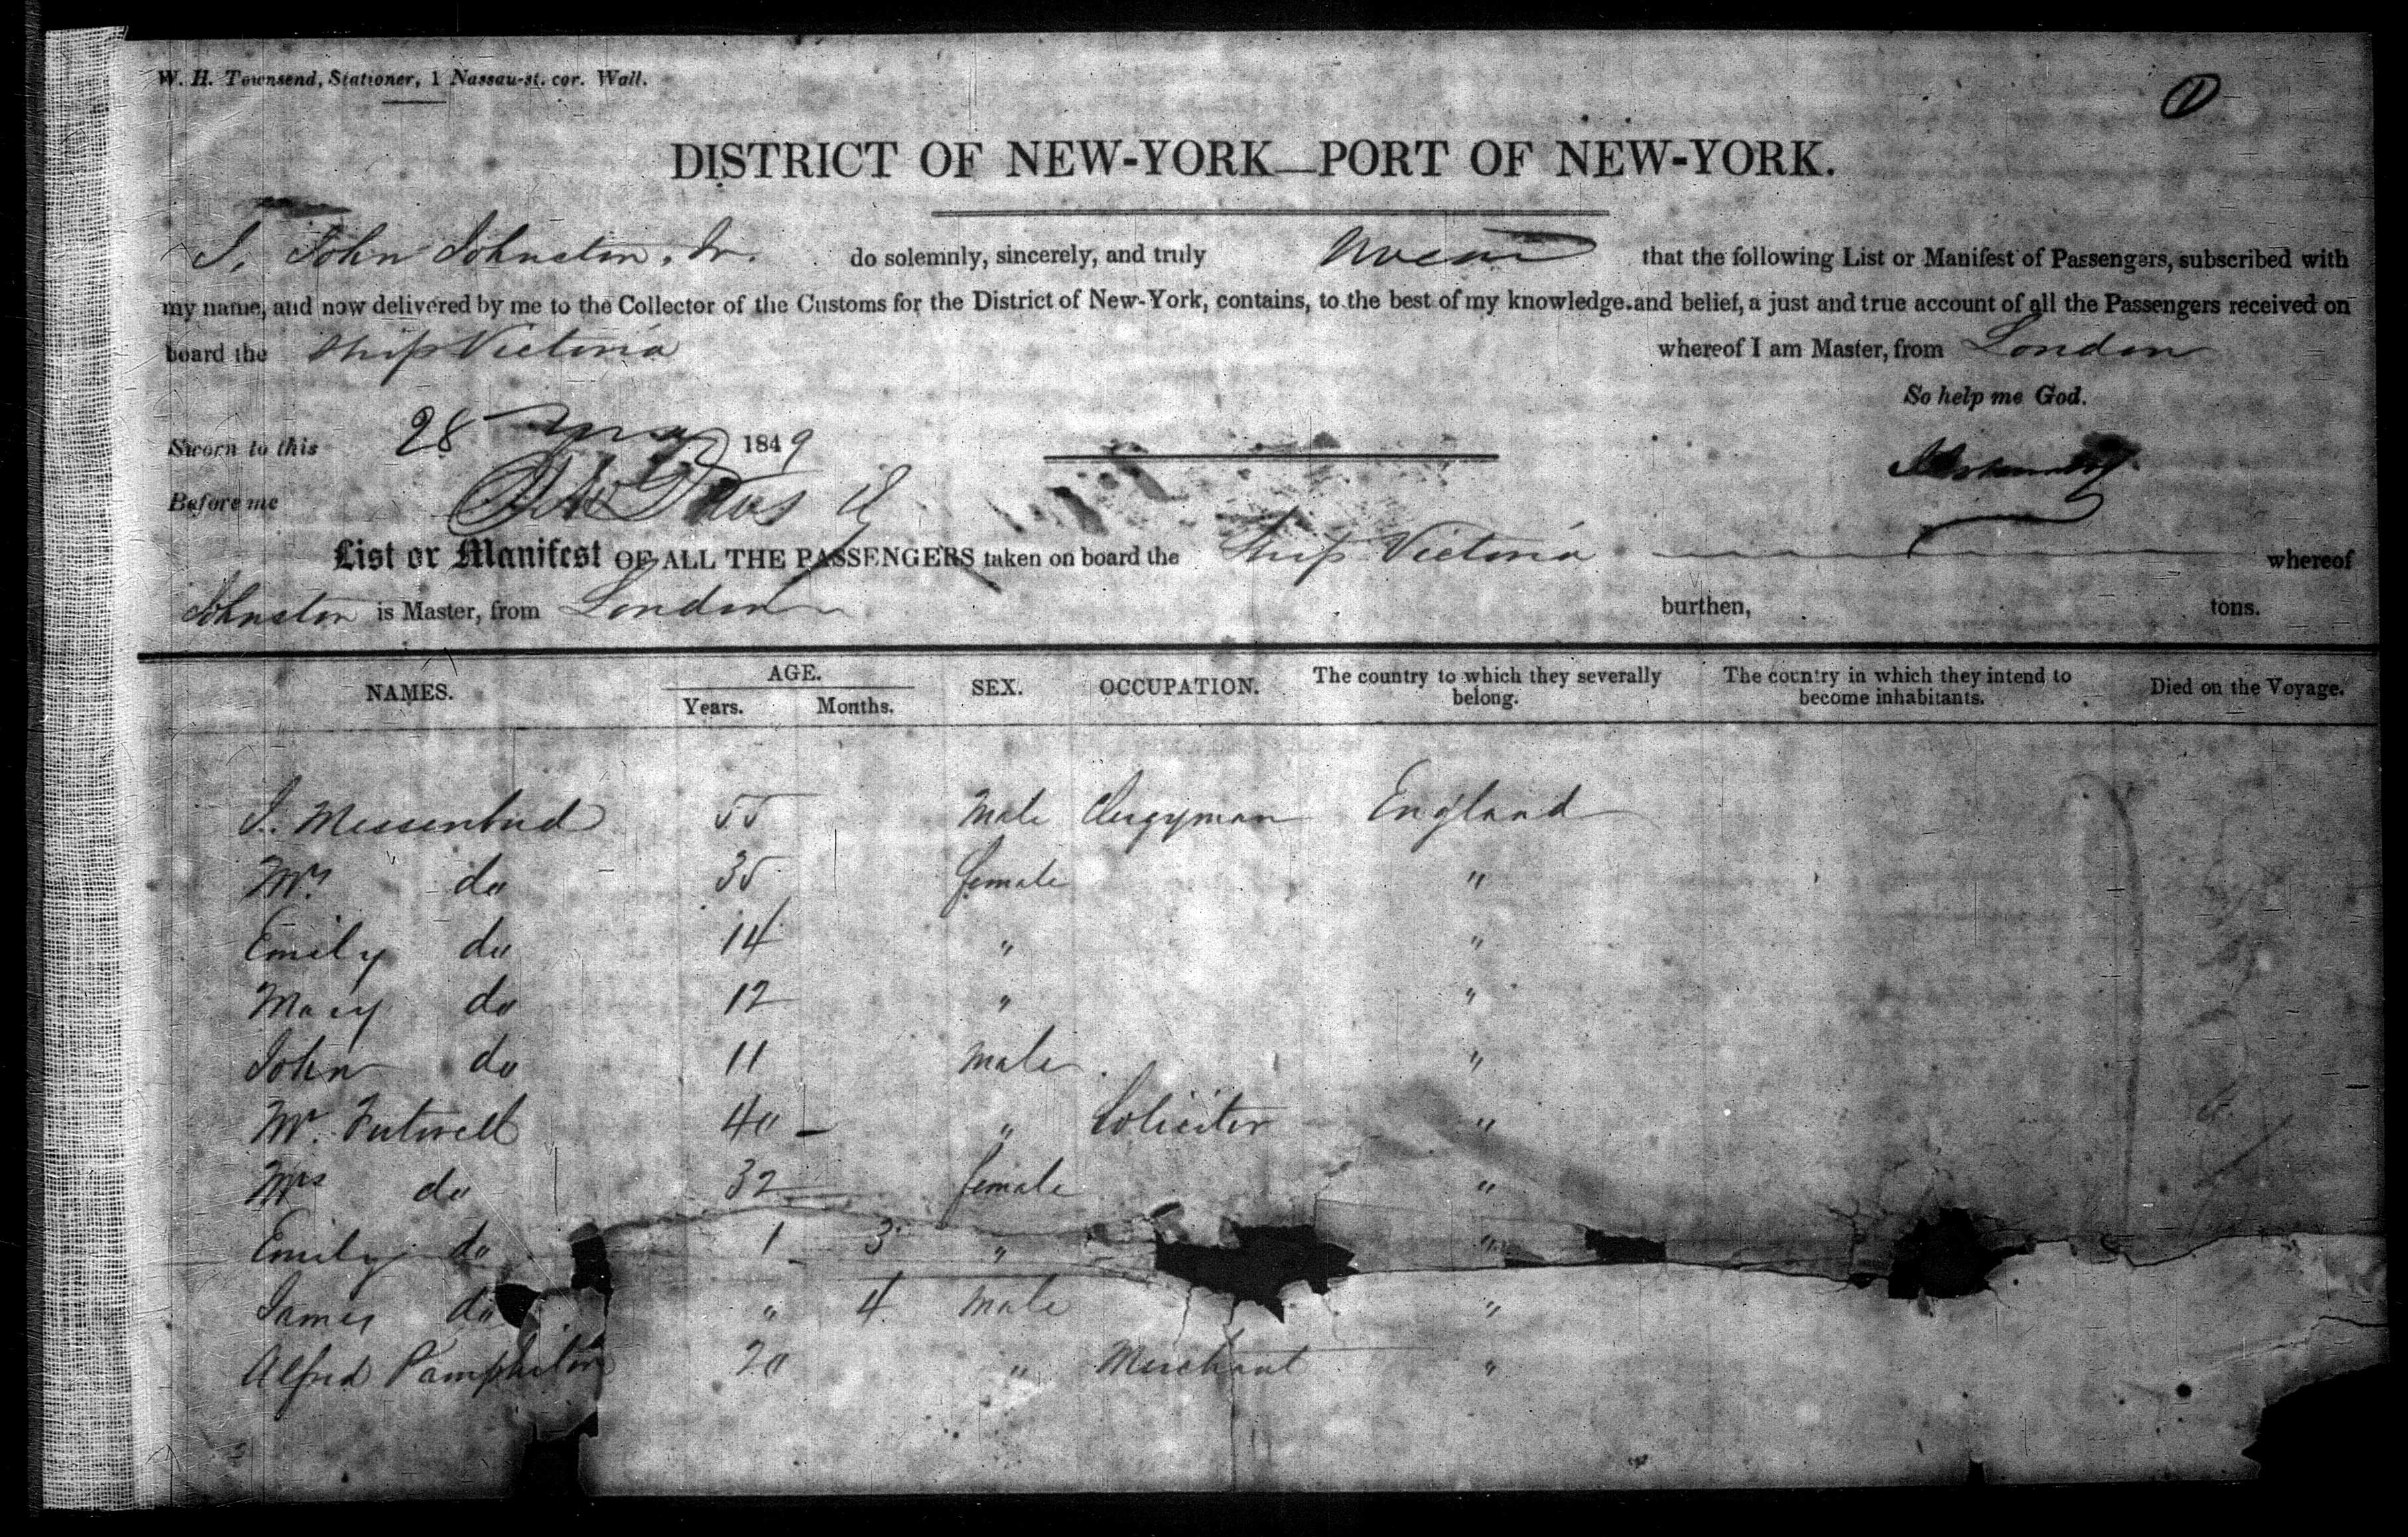 W. H. Townsend, Stationer, 1 Nassau-st. cor. Wall.
1
DISTRICT OF NEW-YORK—PORT OF NEW-YORK.
I, John Johnston, Jr. do solemnly, sincerely, and truly swear that the following List or Manifest of Passengers, subscribed with
my name, and now delivered by me to the Collector of the Customs for the District of New-York, contains, to the best of my knowledge and belief, a just and true account of all the Passengers received on
board the Ship Victoria whereof I am Master, from London
So help me God.
Sworn to this 28 1849
Before me
List or Manifest OF ALL THE PASSENGERS taken on board the Ship Victoria whereof
Johnston is Master, from London burthen, tons.
NAMES. AGE. Years. Months. SEX. OCCUPATION. The country to which they severally belong. The country in which they intend to become inhabitants. Died on the Voyage.
J. 55 Male Clergyman England
Mrs do 35 female "
Emily do 14 " "
Mary do 12 " "
John do 11 male "
Mr. 40 – " Soliciter "
Mrs do 32 female "
Emily do 1 3 " "
James do " 4 Male "
Alfred 20 " Merchant "